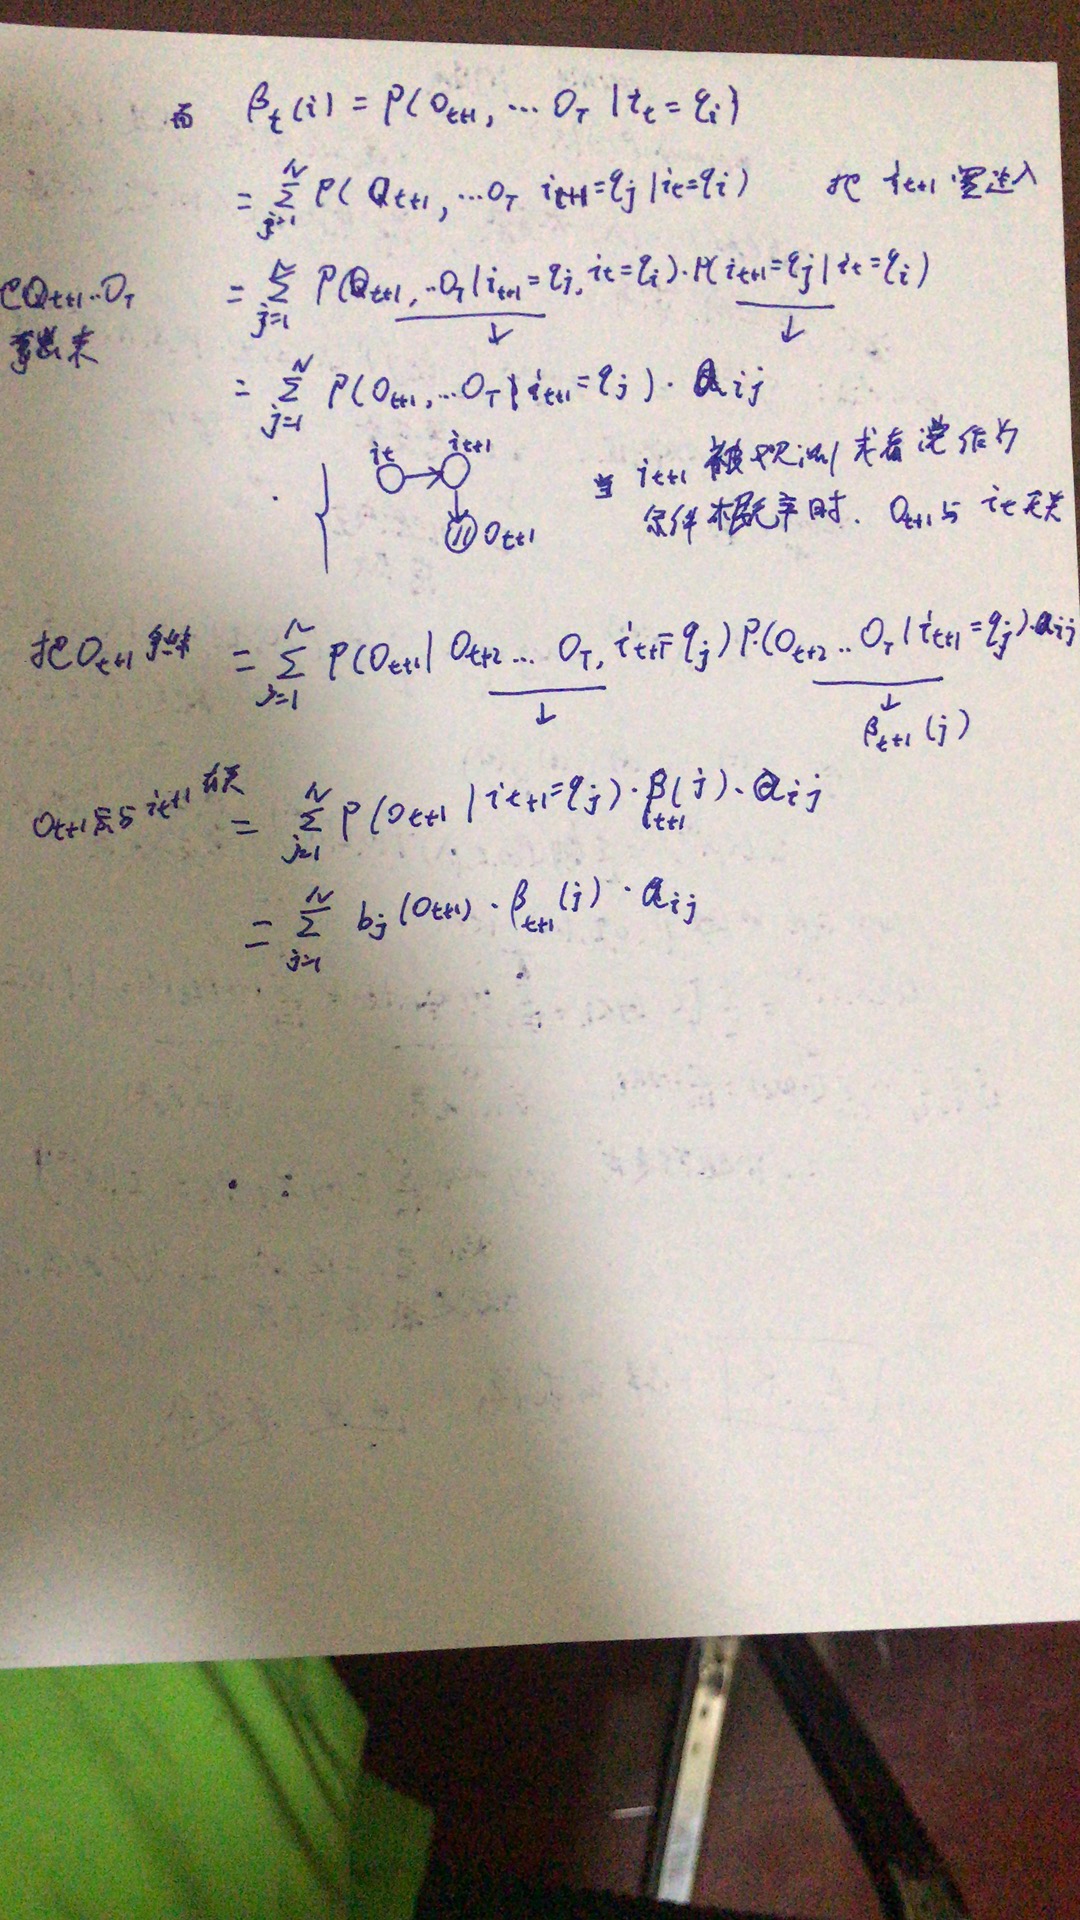 而 β_t(i) = P(O_{t+1}, … O_T | i_t = q_i)
= Σ_{j=1}^{N} P(O_{t+1}, … O_T i_{t+1} = q_j | i_t = q_i) 把 i_{t+1} 塞进入
把 O_{t+1} … O_T = Σ_{j=1}^{N} P(O_{t+1}, … O_T | i_{t+1} = q_j, i_t = q_i) · P(i_{t+1} = q_j | i_t = q_i)
出来
↓ ↓
= Σ_{j=1}^{N} P(O_{t+1}, … O_T | i_{t+1} = q_j) · a_{ij}
i_t → i_{t+1}
当 i_{t+1} 被观测 或者 作为
O_{t+1}
条件概率时. O_{t+1} 与 i_t 无关
把 O_{t+1} = Σ_{j=1}^{N} P(O_{t+1} | O_{t+2} … O_T, i_{t+1} = q_j) P(O_{t+2} … O_T | i_{t+1} = q_j) · a_{ij}
↓ ↓
β_{t+1}(j)
O_{t+1} 与 i_{t+1} 有关 = Σ_{j=1}^{N} P(O_{t+1} | i_{t+1} = q_j) · β_{t+1}(j) · a_{ij}
= Σ_{j=1}^{N} b_j(O_{t+1}) · β_{t+1}(j) · a_{ij}